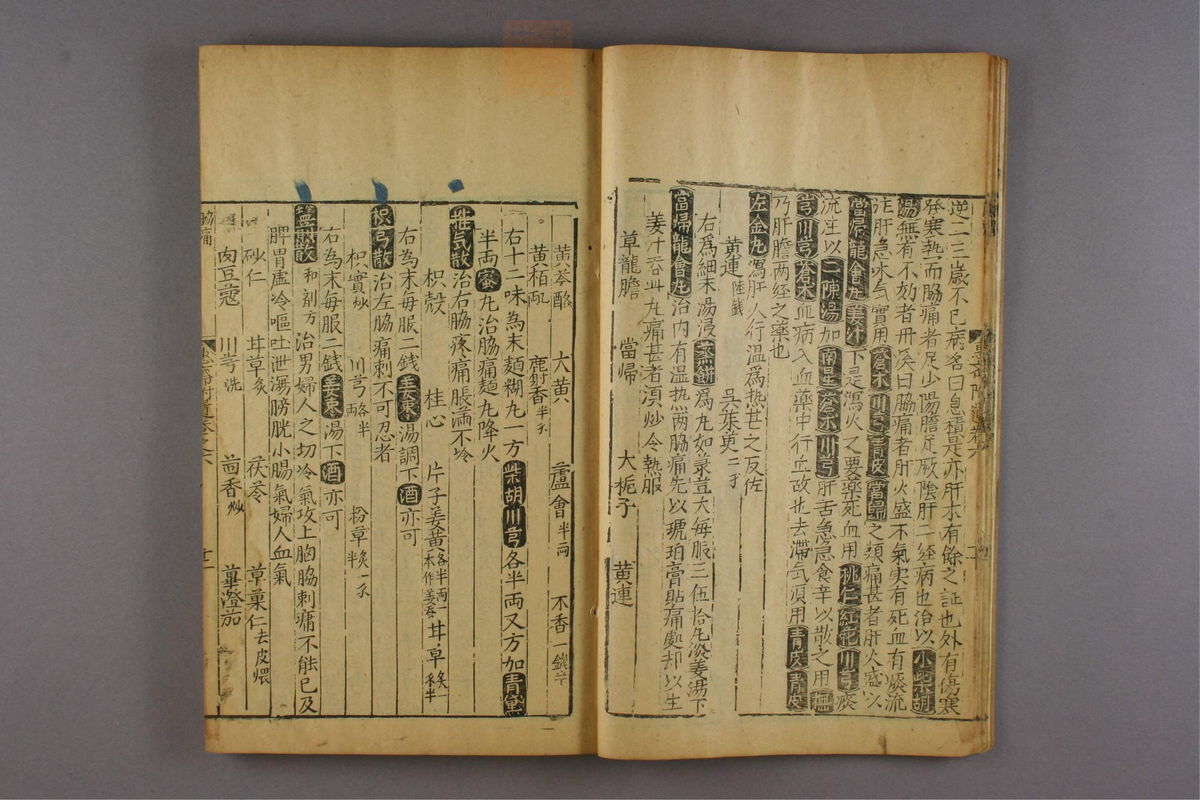 逆二三歲不已病名曰息積是亦肝木有餘之証也外有傷寒
發寒熱而脇痛者足少陽膽足厥陰肝二經病也治以小柴胡
湯無有不効者丹溪曰脇痛者肝火盛木氣实有死血有痰流
注肝急木气實用蒼术川芎青皮當歸之類痛甚者肝火盛以
當帰龍會丸姜汁下是瀉火之要藥死血用桃仁紅花川芎痰
流注以二陳湯加南星蒼术川芎肝苦急急食辛以散之用撫
芎川芎蒼术血病入血藥中行血故也去滯气須用青皮青皮
乃肝膽两经之藥也
左金丸瀉肝人行温為热甚之反佐
黄連陸戔 吳茱萸二子
右為細末湯浸蒸餅為丸如菉豆大每服三伍恰丸淡姜湯下
當帰龍會丸治内有温热两脇痛先以琥珀膏貼痛處却以生
姜汁吞此丸痛甚者須炒令熱服
草龍膽 當帰 大梔子 黄連
黄芩酪 大黄 蘆會半両 木香一錢半
黄栢 麝香半子
右十二味為末麺糊丸一方柴胡川芎各半両又方加青黛
半両蜜丸治脇痛麺丸降火
推氣散治右脇疼痛脹滿不冷
枳殼 桂心 片子姜黄各半両一本作姜蚕 甘草炙一子半
右為末每服二錢姜棗湯調下酒亦可
枳芎散治左脇痛刺不可忍者
枳實炒 川芎各半両 粉草炙一子半
右為末每服二錢姜棗湯下酒亦可
盐煎散和剤方治男婦人之切冷氣攻上胸脇刺痛不能已及
脾胃虚冷嘔吐泄瀉膀胱小腸氣婦人血氣
砂仁 甘草炙 茯苓 草菓仁去皮煨
肉豆蔻 川芎洗 茴香炒 蓽澄茄
脇痛